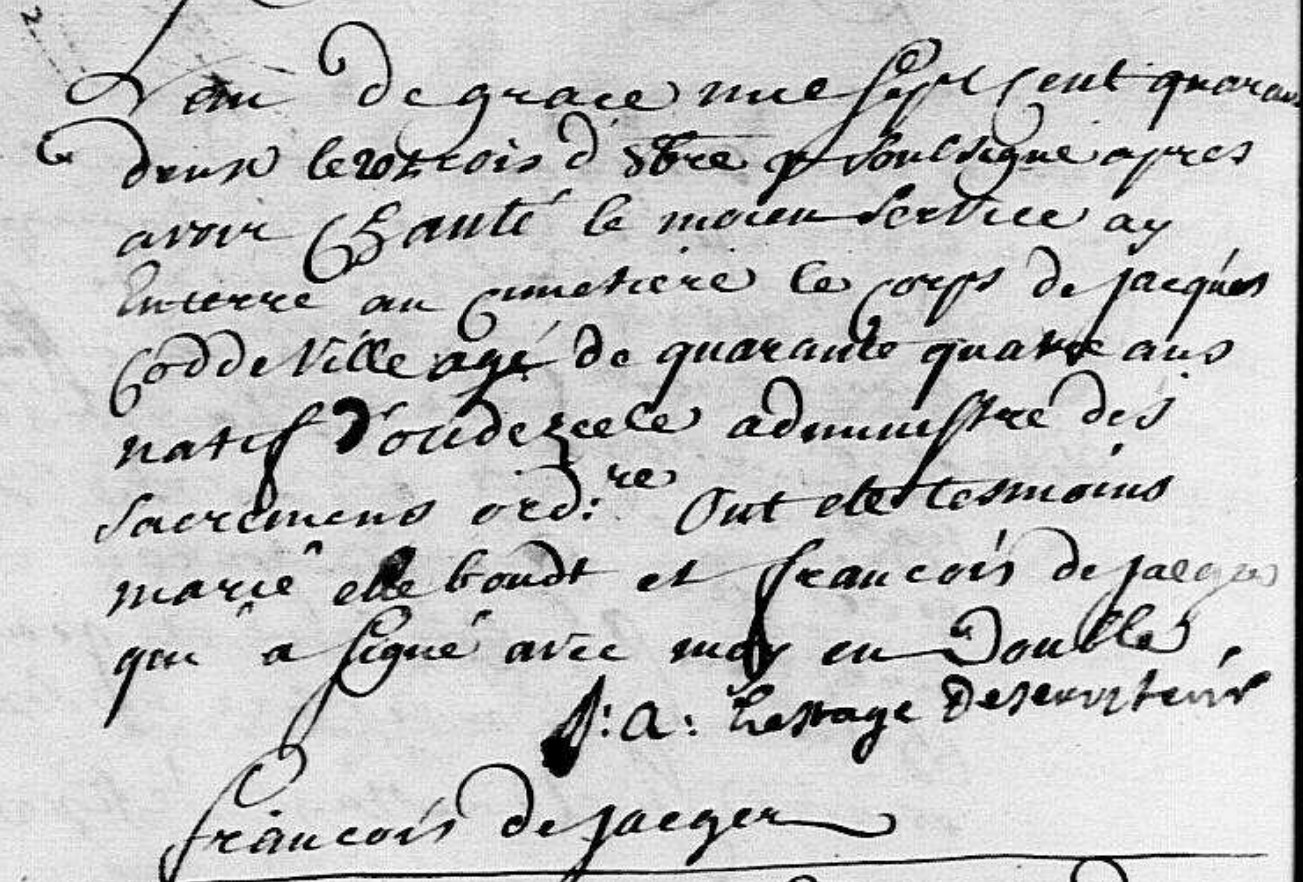 L'an de grace mil sept cent quaran
deux le trois d' 8bre je soussigné apres
avoir chanté le moien service ay
Enterré au cimetiere le corps de jacques
Coddeville agé de quarante quatre ans
natif d'oudezeele administré des
sacremens ord:re Ont eté tesmoins
marie boudt et francois de jaeger
qui a signé avec moy en Double
J: a: Lesage Deserviteur
francois de jaeger